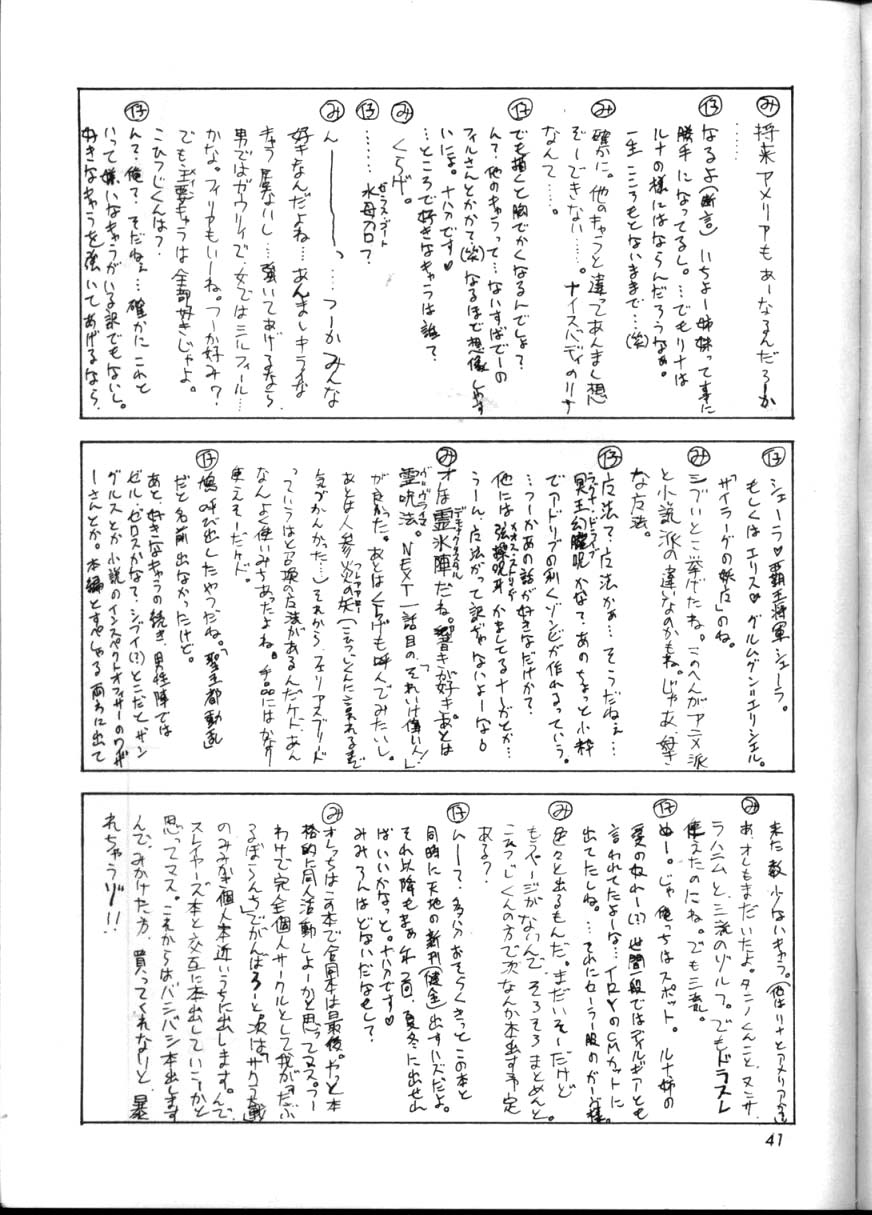 み 将来アメリアもあーなるんだろーか
……
仔 なるよ(断言)いちおー姉妹って事に
勝手になってるし。…でもリナは
ルナの様にはならんだろうなぁ。
一生こころもとないままで…(笑)
み 確かに。他のキャラと違ってあんまし想
ぞーできない……。ナイスバディのリナ
なんて……。
仔 でも描くと胸でかくなるんでしょ?
ん?他のキャラって…ないすばでーの
フィルさんとかかて(笑)なるほど想像しやす
いにょ。ナハハです♡
…ところで好きなキャラは誰?
み くらげ。
仔 ……水母フロ?
み ん————っ…つーかみんな
好きなんだよね…あんましキライな
きゃら居ないし…強いてあげるなら
男ではガウリイで、女ではミルフィール…
かな。フィリアもいーね。つーか好み?
でも主要キャラは全部好きじゃよ。
こひつじくんは?
仔 ん?俺?そだねぇ…確かにこれと
いって嫌いなキャラがいる訳でもないし。
好きなキャラを強いてあげるなら、
仔 シェーラ♡覇王将軍シェーラ。
もしくはエリス♡グルムグン=エリシエル。
「サイラーグの妖兵」のね。
み シブいとこ挙げたね。このへんがアニメ派
と小説派の違いなのかもね。じゃあ、好き
な呪法。
仔 呪法?呪法かぁ…そこうだねぇ…
冥王幻朧呪かな?あのちょっと小粋
でアドリブの利くゾンビが作れるっていう。
…つーかあの話が好きなだけか?
うーん、呪法がって訳じゃないよーな。
み オレは霊氷陣だね。響きが好き。あとは
霊呪法。NEXT一話目の「それいけ偉い人!」
が良かった。あとはくらげも呼んでみたいし。
あとは人参火の矢(こひつじくんに言われるまで
気づかんかった…)それから、フェリアスブリード
っていうはと召喚の呪法があるんだケド、あん
なんよく使いみちあったよね。手品にはかなり
使えそーだケド。
仔 鳩呼び出したやつだね。「聖王都動乱」
だと名前出なかったけど。
あと、好きなキャラの続き、男性陣では
ゼル、ゼロスかな?シブイ(?)とこだとザン
グルスとか小説のインスペクトオフィサーのワイザ
ーさんとか。本編とすぺしゃる両方に出て
来た数少ないキャラ。(他はリナとアメリア)
み あ、オレもまだいたよ。タニノくんこと、ヌンサ、
ラハニムと、三流のゾルフ。でもドラスレ
使えたのにね。でも三流。
仔 ぬー。じゃ俺っちはスポット。ルナ姉の
愛の奴れー(?)世間一般ではディルギアとも
言われてたよーな…イロイロのCMカットに
出てたしね。…それにセーラー服の
み 色々と出るもんだ。まだいそーだけど
もうページがないんで そろそろまとめんと。
こひつじくんの方で次なんか本出す予定
ある?
仔 ムーー?、多分おそらくきっとこの本と
同時に天地の新刊(健全)出すハズだよ。
それ以降もまぁ年2回、夏冬に出せれ
ばいいかなっと。ナハハです♡
みみろんはどないだなせして?
み オレっちはこの本で合同本は最後。やっと本
格的に同人活動しよーかと思ってマス。つー
わけで完全個人サークルとして我が「だぶ
るぼーらんち」でがんばろーと。次は「サクラ大戦」
のみみなぎ個人本近いうちに出します。んで、
スレイヤーズ本と交互に本出していこーかと
思ってマス。これからはバシバシ本出します
んで、みかけた方、買ってくれないと、暴
れちゃうゾ!!
41